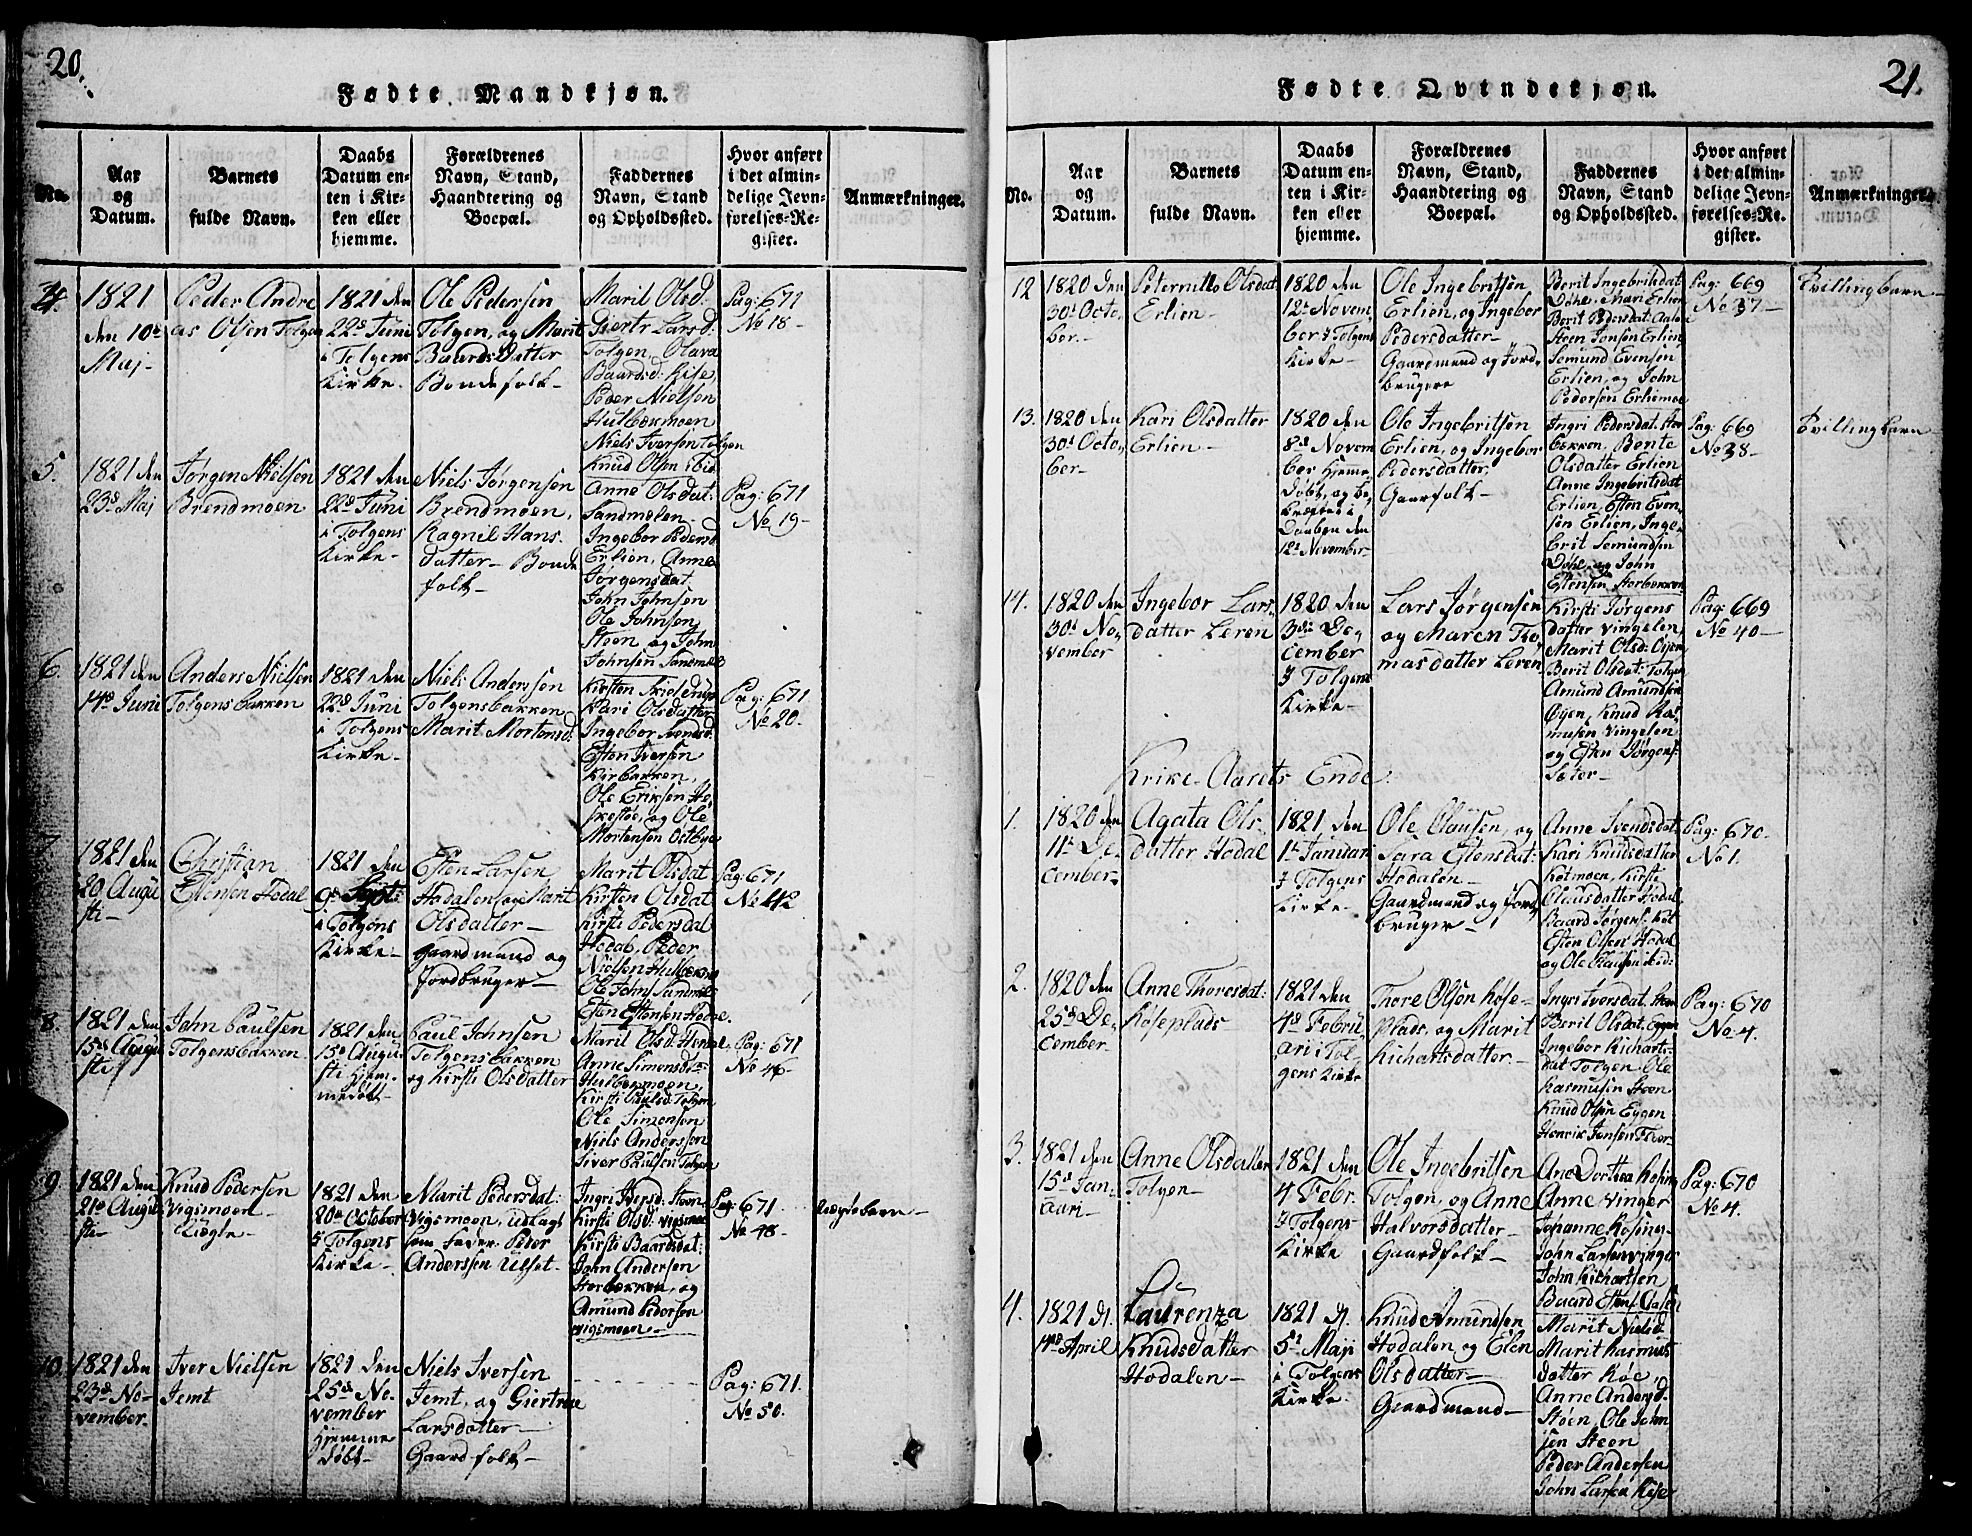 20.
Fødte Mandkjøn.
No.
Aar
og
Datum.
Barnets
fulde Navn.
Daabs
Datum en-
ten i Kir-
ken eller
hjemme.
Forældrenes
Navn, Stand,
Haandtering og
Boepæl.
Faddernes
Navn, Stand
og Opholdssted.
Hvor anført
i det almin-
delige Jevn-
førelses-Re-
gister.
Anmærkninger.
4.
1821
den 10de
Maj-
Peder Andre
as Olsen Tolgen
1821 den
22d Juni
i Tolgens
Kirke-
Ole Pedersen
Tolgen, og Marit
Baards Datter
Bondefolk-
Marit Olsd:
Giertr Larsd:
Tolgen, Olava
Baardsd: Kise,
Peder Nielsen
Hulbekmoen
Niels Iversen Tolgen
Knud Olsen ibid
Pag: 671
No 18-
5.
1821 den
23d Maj
Jørgen Nielsen
Brendmoen
1821 den
22d Juni
i Tolgens
Kirke-
Niels Jørgensen
Brendmoen,
Ragnil Hans
datter- Bonde
folk-
Anne Olsdat:
Sandmælen
Ingebor Pedersd
Erlien, Anne
Jørgensdat:
John Johnsen
Ole Johnsen
Steen, og John
Johnsen
Pag: 671
No 19-
6.
1821 den
14d Juni
Anders Nielsen
Tolgensbakken
1821 den
22d Juni
i Tolgens
Kirke-
Niels Anderssen
Tolgensbakken
Marit Mortensd:
Kirsten
Kari Olsdatter
Ingebor
Esten Iversen
Kirbakken,
Ole Eriksen
og Ole
Mortensen Østbye
Pag: 671
No 20.
7.
1821 den
20 Augu
sti-
Christian
Estensen Hodal
1821 den
9d Sept:
i Tolgens
Kirke-
Esten Larsen
Hodalen, og Marit
Olsdatter-
Gaardmand og
Jordbruger-
Marit Olsdat
Kirsten Olsdat
Kirsti Pedersdat
Hodal, Peder
Nielsen Hulbekm
Ole John Sandmæl
Esten Estensen Hodal.
Pag: 671
No 42
8.
1821 den
15de Augu
sti
John Paulsen
Tolgensbakken
1821 den
15d Augu
sti Hjem-
medøbt-
Paul Johnsen
Tolgensbakken
og Kirsti Olsdatter
Marit Olsd:
Anne Simensd:
Hulbekmoen,
Kirsti Paulsd: Tolgen
Ole Simensen
Niels Anderssen
Siver Paulsen Tolgen
Pag: 671
No 46-
9
1821 den
21d Augu
sti-
Knud Pedersen
Vigsmoen
Uægte-
1821 den
20de October
i Tolgens
Kirke-
Marit Pedersdat:
Vigsmoen, udlagt
som Fader Peter
Anderssen Ulset-
Kirsti Olsd: Vigsmoe
Kirsti Baardsdat:
John Andersen
Storbekken, og
Amund Pedersen
Vigsmoen-
Pag: 671
No 48-
Uægtebarn-
10.
1821 den
23d No-
vember.
Iver Nielsen
Jemt
1821 den
25de No-
vember
Hjemme
døbt-
Niels Iversen
Jemt, og Giertrue
Larsdatter-
Gaardfolk-
Pag: 671.
No 50.
21.
Fødte Qvindekjøn.
No.
Aar
og
Datum.
Barnets
fulde Navn.
Daabs
Datum en-
ten i Kir-
ken eller
hjemme.
Forældrenes
Navn, Stand,
Haandtering og
Boepæl.
Faddernes
Navn, Stand
og Opholdssted.
Hvor anført
i det almin-
delige Jevn-
førelses-Re-
gister.
Anmærkninger.
12
1820 den
30d Octo-
ber.-
Peternille Olsdat
Erlien-
1820 den
12te Novem
ber I Tolgens
Kirke-
Ole Ingebritsen
Erlien, og Ingebor
Pedersdatter-
Gaardmand og Jord-
brugere
Berit Ingebritsdat
Døhl, Mari Erlien
Berit Pedersdat:
Steen Jonsen Erlien
Semund Evensen
Erlien, og John
Pedersen Erliemoe
Pag: 669
No 37-
Tvillingbarn-
13.
1820 den
30d Octo-
ber-
Kari Olsdatter
Erlien-
1820 den
8de Novem
ber hjemme
døbt, og be-
kræftet i
Daaben den
12t November
Ole Ingebritsen
Erlien, og Ingebor
Pedersdatter
Gaarfolk-
Ingri Pedersdat: Stor
bekken, Bente
Olsdatter Erlien
Anne Ingebritsdat
Erlien, Esten Even-
sen Erlien, Inge-
brit Semundsen
Døhl, og John
Estensen Storbekken
Pag: 669
No 38-
Tvillingbarn
14.
1820 den
30d No-
vember
Ingebor Lars-
datter Leren
1820 den
3die De-
cember
I Tolgens
Kirke-
Lars Jørgensen
og Maren Tho
masdatter Leren
Kirsti Jørgens
datter Vingelen,
Marit Olsd: Øyen
Berit Olsdat: Tolgen
Amund Amundsen
Øyen, Knud Ras-
musen Vingelen
og Esten Jørgens:
Sæter-
Pag: 669
No 40-
Krike-Aarets Ende
1.
1820 de
11te De-
cember.
Agata Ols-
datter Hodal
1821 den
1te Januari
I Tolgens
Kirke-
Ole Clausen, og
Sara Estensdat:
Hodalen-
Gaardmand og Jord-
bruger-
Anne Svendsdat:
Kari Knudsdatter
Kotmoen, Kirsti
Olausdatter Hodal
Baard Jørgens: Kot
Esten Olsen Hodal
og Ole Klausen ibid:
Pag: 670.
No 1.
2.
1820 den
25de De-
cember-
Anne Thoresdat:
Køseplads-
1821 den
4d Febru
ari i Tol-
gens Kirke
Thore Olsen Køse-
plads, og Marit
Richartsdatter-
Ingri Iversdat.
Berit Olsdat: Eggen
Ingebor Richarts-
dat Tolgen Ole
Rasmusen Steen
Knud Olsen Eggen
Henrik Jensen
Pag: 670
No 4.
3.
1821 den
15d Jan-
uari-
Anne Olsdatter
Tolgen-
1821 den
4 Febr.
I Tolgens-
Kirke
Ole Ingebritsen
Tolgen, og Anne
Halvorsdatter-
Gaardfolk-
Ane Dorthea Hosing
Anne Vinger
Johanne Hosing-
John Larsen Vinger
John Richartsen
Baard Estens:
Pag: 670
No 4.
4.
1821 d.
14d April
Laurenza
Knudsdatter
Hodalen-
1821 d.
5t Maji
i Tolgens
Kirke-
Knud Amundsen
Hodalen, og Elen
Olsdatter-
Gaardmand-
Marit Nielsd
Marit Rasmus
datter Køe
Anne Andersd.
Steen, Ole John
sen Steen
Peder Andersen
John Larsen